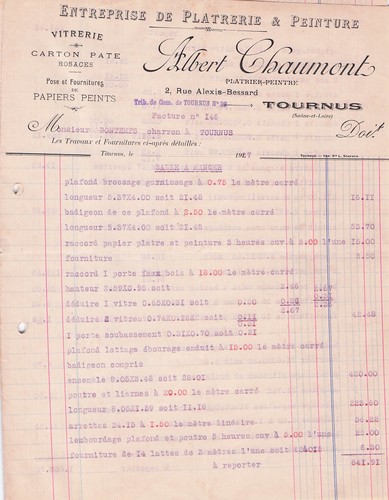 ENTREPRISE DE PLATRERIE & PEINTURE
VITRERIE
CARTON PATE
ROSACES
Pose et Fournitures
DE
PAPIERS PEINTS
Albert Chaumont
PLATRIER-PEINTRE
2, Rue Alexis-Bessard
Trib. de Com. de TOURNUS N°
TOURNUS
(Saône-et-Loire)
Facture n° 146
Monsieur BONTEMPS charron à TOURNUS
Doit
Les Travaux et Fournitures ci-après détaillés :
Tournus, le 19
SALLE A MANGER
plafond brossage garnissage à 0.75 le mètre carré
longueur 5.37X4.00 soit 21.48 16.11
badigeon de ce plafond à 2.50 le mètre carré
longueur 5.37X4.00 soit 21.48 53.70
raccord papier platre et peinture 3 heures à 5.00 l'une 15.00
fourniture
raccord 1 porte faux bois à 18.00 le mètre carré
hauteur soit
déduire 1 vitre 0.65X0.31 soit 0.20
déduire 2 vitres soit
2.67
0.21
1 porte soubassement 0.31X0.70 soit 0.21
plafond lattage débourage enduit à 15.00 le mètre carré
badigeon compris
ensemble 8.05X3.48 soit 28.01 420.00
poutre et liarnes à 20.00 le mètre carré
longueur soit 11.18 223.60
arrettes 24.15 à 1.50 le mètre linéaire 36.22
lembourdage plafond et poutre 5 heures à 5.00 l'une 25.00
fourniture de 14 lattes de 2 mètres l'une soit
à reporter 841.91